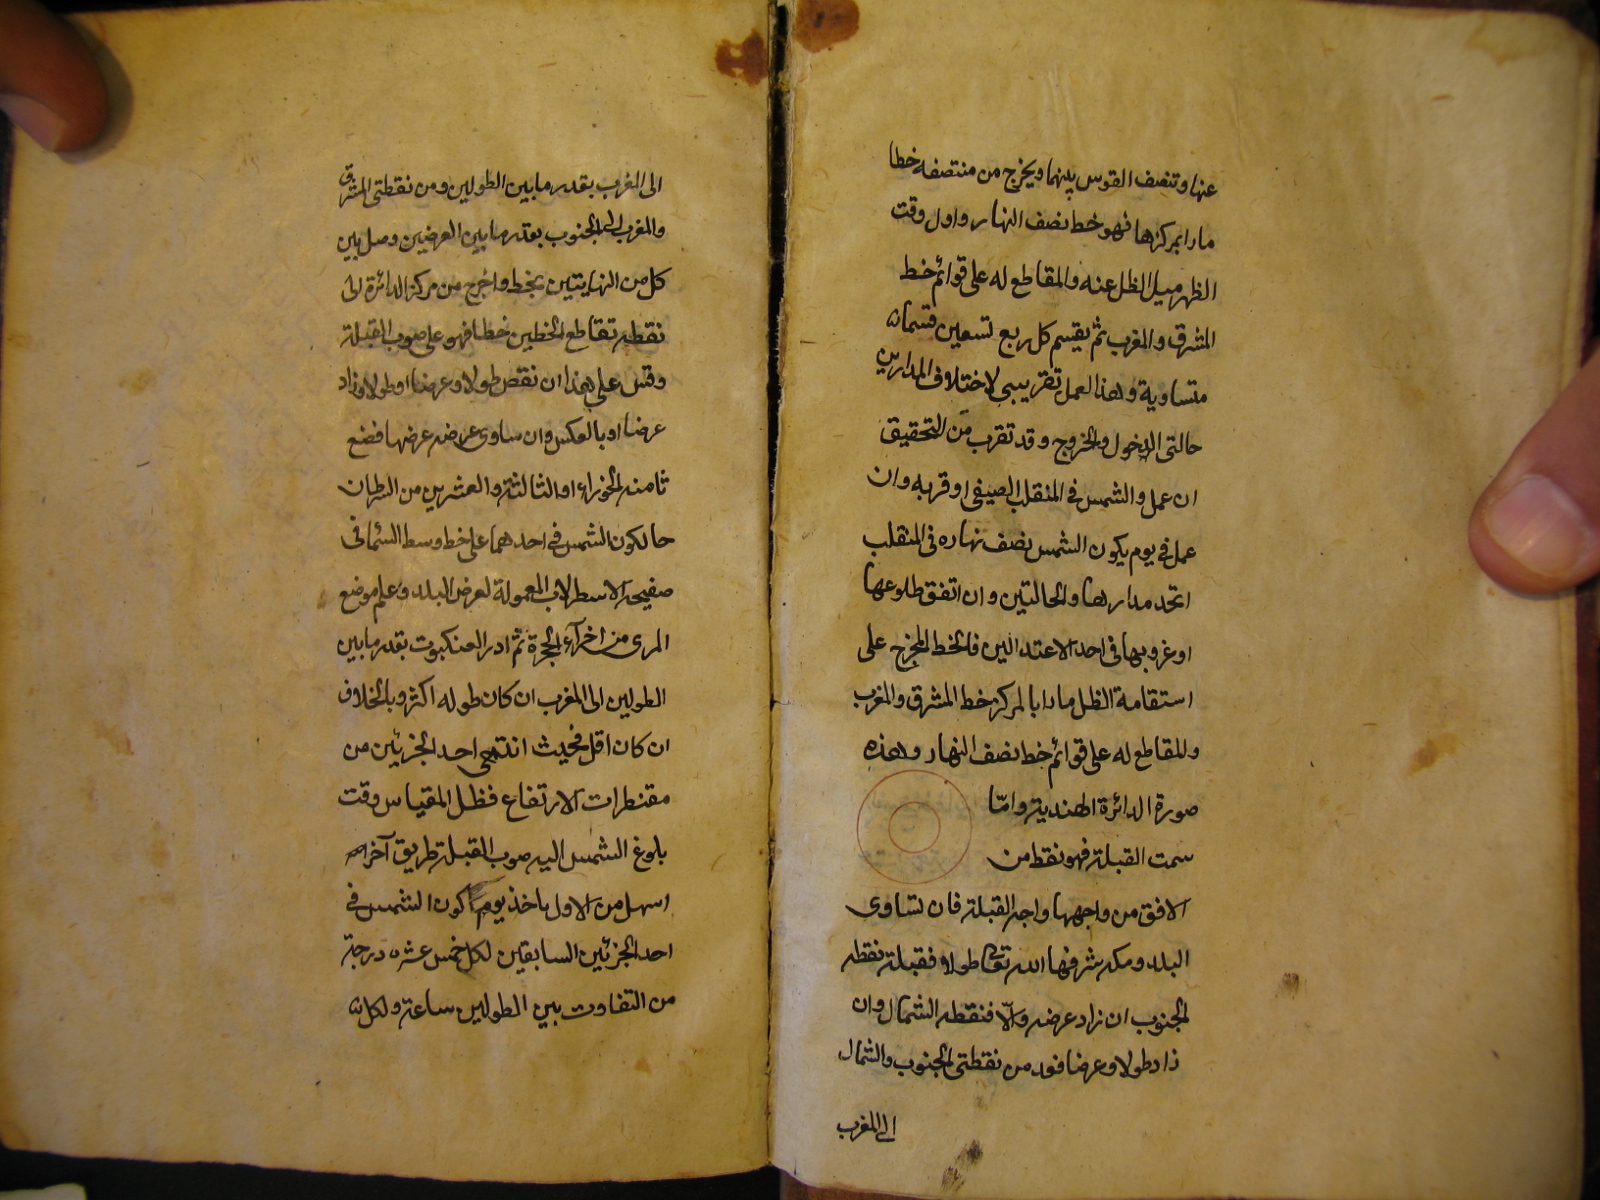 عنها وتنصف القوس بينهما ويخرج من منتصفه خطا
مارا بمركزها فهو خط نصف النهار واول وقت
الظهر ميل الظل عنه والمقاطع له على قوائم خط
المشرق والمغرب ثم يقسم كل ربع تسعين قسما
متساوية وهذا العمل تقريبي لاختلاف المدارين
حالتي الدخول والخروج وقد تقرب من التحقيق
ان عمل والشمس في المنقلب الصيفي او قربه وان
عمل في يوم يكون الشمس نصف نهاره في المنقلب
اتحد مدارها والحالتين وان اتفق طلوعها
او غروبها في احد الاعتدالين فالخط المخرج على
استقامة الظل مارا بالمركز خط المشرق والمغرب
والمقاطع له على قوائم خط نصف النهار وهذه
صورة الدائرة الهندية واما
سمت القبلة فهو نقط من
الافق من واجهها واجه القبلة فان تساوى
البلد ومكه شرفها الله تعالى طولا فقبلته نقطه
الجنوب ان زاد عرضه والّا فنقطه الشمال وان
زاد طولا وعرضا فعد من نقطتي الجنوب والشمال
الى المغرب
الى المغرب بقدر ما بين الطولين ومن نقطتي المشرق
والمغرب الى الجنوب بقدر ما بين العرضين وصل بين
كل من النهايتين بخط واخرج من مركز الدائرة الى
نقطه تقاطع الخطين خطا فهو على صوب القبلة
وقس على هذا ان نقص طولا وعرضا او طولا وزاد
عرضا او بالعكس وان ساوى عرضه عرضها فضع
ثامنه الجوزاء او الثالثة والعشرين من السرطان
حال كون الشمس في احدهما على خط وسط السماء في
صفيحه الاسطرلاب المعمولة لعرض البلد وعلم موضع
المرى من اجزآء الحجرة ثم ادر العنكبوت بقدر ما بين
الطولين الى المغرب ان كان طوله اكثر وبالخلاف
ان كان اقل فحيث انتهى احد الجزئين من
مقنطرات الارتفاع فظل المقياس وقت
بلوغ الشمس اليه صوب القبلة طريق آخر
اسهل من الاول باخذ يوم كون الشمس في
احد الجزئين السابقين لكل خمس عشره درجة
من التفاوت بين الطولين ساعة ولكل